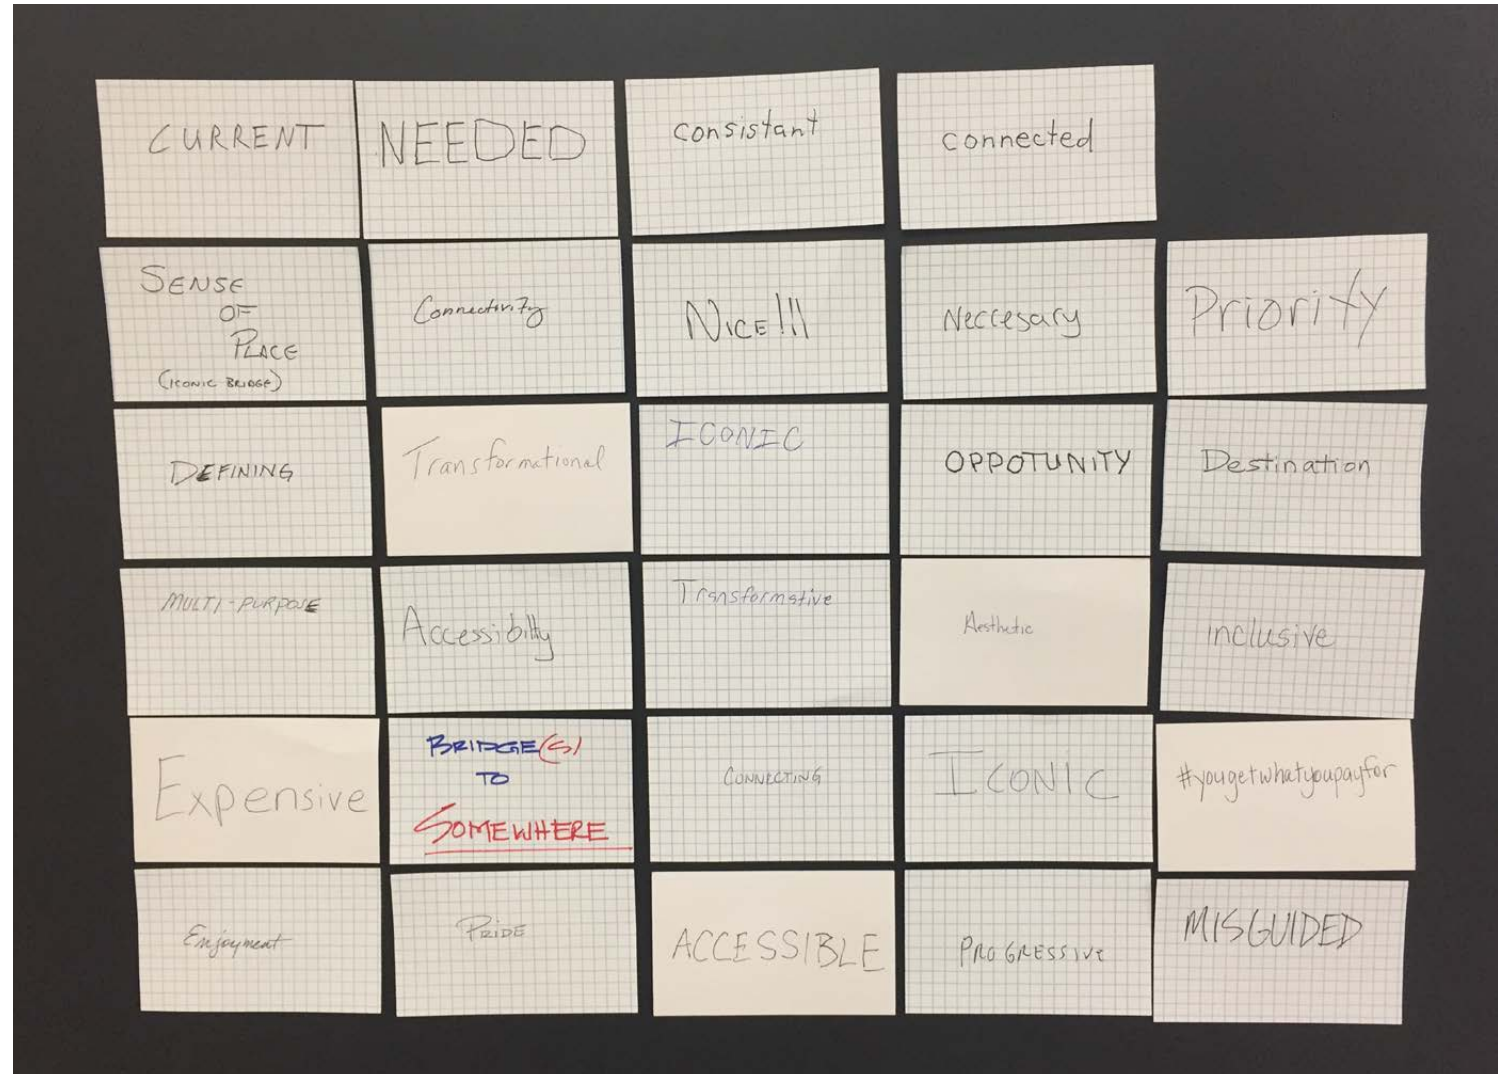 CURRENT
NEEDED
consistant
connected
SENSE
OF
PLACE
(ICONIC BRIDGE)
Connectivity
NICE!!!
Neccesary
Priority
DEFINING
Transformational
ICONIC
OPPOTUNITY
Destination
MULTI-PURPOSE
Accessibilty
Transformative
Aesthetic
inclusive
Expensive
BRIDGE(S)
TO
SOMEWHERE
CONNECTING
ICONIC
#yougetwhatyoupayfor
Enjoyment
PRIDE
ACCESSIBLE
PROGRESSIVE
MISGUIDED